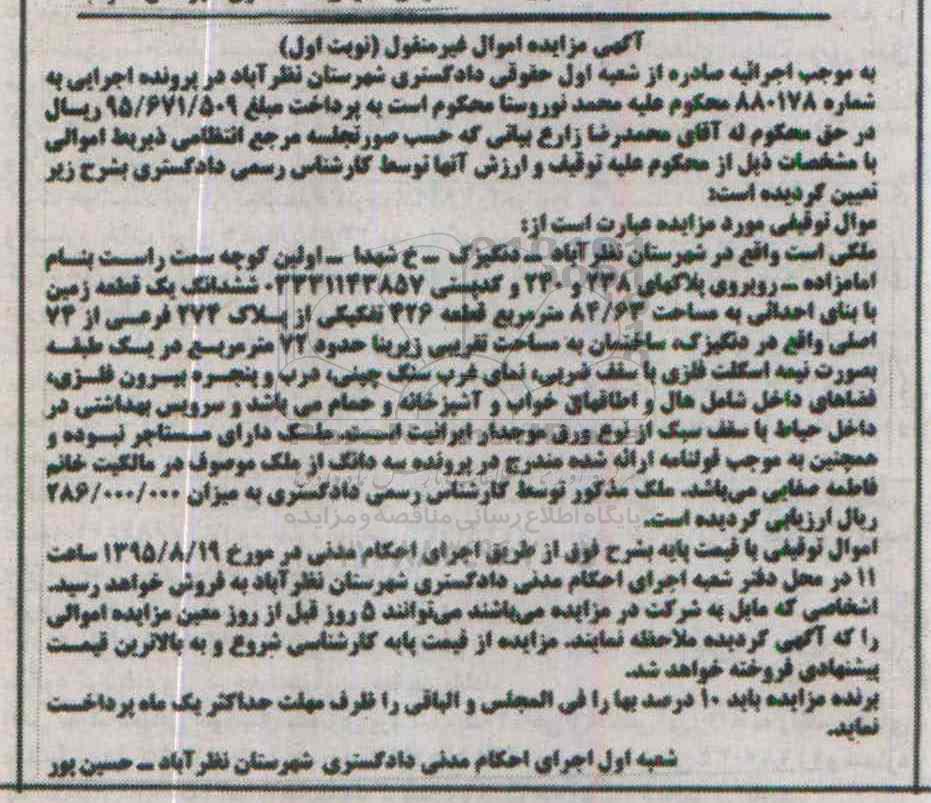 آگهی مزایده اموال غیرمنقول (نوبت اول)
به موجب اجرائیه صادره از شعبه اول حقوقی دادگستری شهرستان نظرآباد در پرونده اجرایی به
شماره ۸۸۰۱۷۸ محکوم علیه محمد نوروستا محکوم است به پرداخت مبلغ ۹۵/۶۷۱/۵۰۹ ریال
در حق محکوم له آقای محمدرضا زارع بیاتی که حسب صورتجلسه مرجع انتظامی ذیربط اموالی
با مشخصات ذیل از محکوم علیه توقیف و ارزش آنها توسط کارشناس رسمی دادگستری بشرح زیر
تعیین گردیده است:
موال توقیفی مورد مزایده عبارت است از:
ملکی است واقع در شهرستان نظرآباد ــ دنگیزک ــ خ شهدا ــ اولین کوچه سمت راست بنام
امامزاده ــ روبروی پلاکهای ۲۳۸ و ۲۴۰ و کدپستی ۰۳۳۳۱۱۴۳۸۵۷ ششدانگ یک قطعه زمین
با بنای احداثی به مساحت ۸۴/۶۳ مترمربع قطعه ۴۲۶ تفکیکی از پلاک ۲۷۴ فرعی از ۷۳
اصلی واقع در دنگیزک، ساختمان به مساحت تقریبی زیربنا حدود ۷۲ مترمربع در یک طبقه
بصورت نیمه اسکلت فلزی با سقف ضربی، نمای غرب سنگ چینی، درب و پنجره بیرون فلزی،
فضاهای داخل شامل هال و اطاقهای خواب و آشپزخانه و حمام می باشد و سرویس بهداشتی در
داخل حیاط با سقف سبک از نوع ورق موجدار ایرانیت است. ملک دارای مستاجر نبوده و
همچنین به موجب قولنامه ارائه شده مندرج در پرونده سه دانگ از ملک موصوف در مالکیت خانم
فاطمه صفایی می‌باشد. ملک مذکور توسط کارشناس رسمی دادگستری به میزان ۲۸۶/۰۰۰/۰۰۰
ریال ارزیابی گردیده است.
پایگاه اطلاع رسانی مناقصه و مزایده
اموال توقیفی با قیمت پایه بشرح فوق از طریق اجرای احکام مدنی در مورخ ۱۳۹۵/۸/۱۹ ساعت
۱۱ در محل دفتر شعبه اجرای احکام مدنی دادگستری شهرستان نظرآباد به فروش خواهد رسید.
اشخاصی که مایل به شرکت در مزایده می‌باشند می‌توانند ۵ روز قبل از روز معین مزایده اموالی
را که آگهی گردیده ملاحظه نمایند. مزایده از قیمت پایه کارشناسی شروع و به بالاترین قیمت
پیشنهادی فروخته خواهد شد.
برنده مزایده باید ۱۰ درصد بها را فی المجلس و الباقی را ظرف مهلت حداکثر یک ماه پرداخت
نماید.
شعبه اول اجرای احکام مدنی دادگستری شهرستان نظرآباد ــ حسین پور